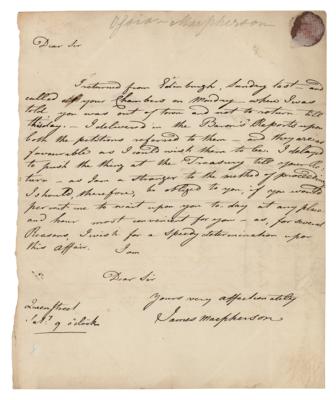 Ossian Macpherson
Dear Sir
I returned from Edinburgh, Sunday last — and
called at your Chambers on Monday — where I was
told you was out of town and not to return till
this day. — I delivered in the Baron's Reports upon
both the petitions referred to them — and they are
favourable as I could wish them to be. I delayed
to push the thing at the Treasury till your re-
turn — as I am a stranger to the method of proceeding
I should, therefore, be obliged to you, if you would
permit me to wait upon you to day at any place
and hour most convenient for you — as, for several
Reasons, I wish for a speedy determination upon
this affair. I am
Dear Sir
Yours very affectionately
James Macpherson
Queen Street
9 o'clock